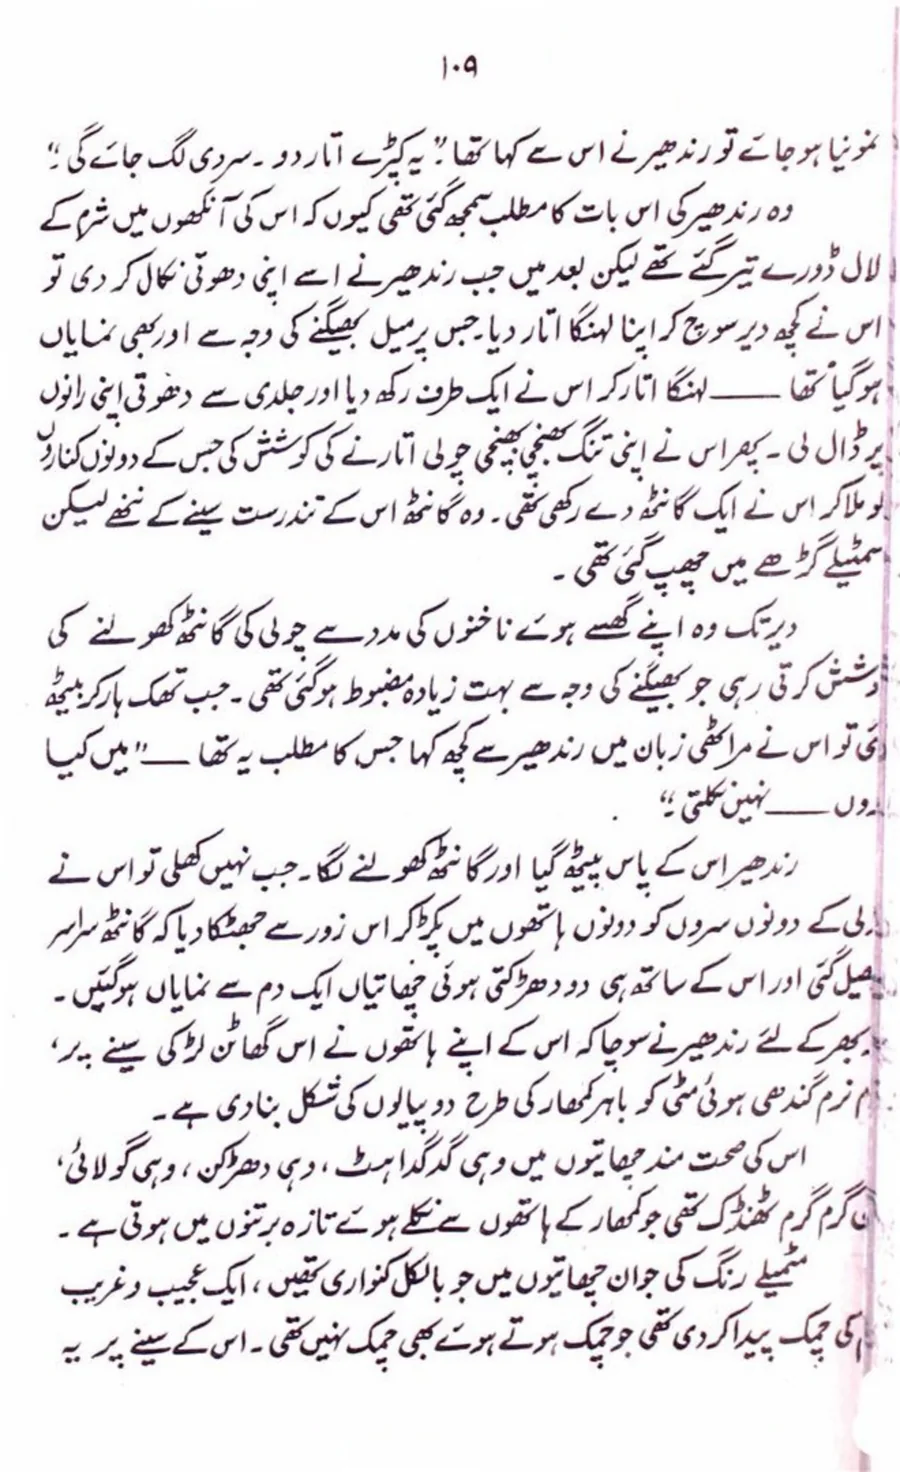 ۱۰۹
نمونیا ہو جائے تو رندھیر نے اس سے کہا تھا۔" یہ کپڑے اتار دو ۔ سردی لگ جائے گی ۔"
وہ رندھیر کی اس بات کا مطلب سمجھ گئی تھی کیوں کہ اس کی آنکھوں میں شرم کے
لال ڈورے تیر گئے تھے لیکن بعد میں جب رندھیر نے اسے اپنی دھوتی نکال کر دی تو
اس نے کچھ دیر سوچ کر اپنا لہنگا اتار دیا۔ جس پر میل بھیگنے کی وجہ سے اور بھی نمایاں
ہو گیا تھا ——— لہنگا اتار کر اس نے ایک طرف رکھ دیا اور جلدی سے دھوتی اپنی رانوں
پر ڈال لی ۔ پھر اس نے اپنی تنگ بھنچی بھنچی چولی اتارنے کی کوشش کی جس کے دونوں کناروں
کو ملا کر اس نے ایک گانٹھ دے رکھی تھی ۔ وہ گانٹھ اس کے تندرست سینے کے ننھے لیکن
سمٹیلے گڑھے میں چھپ گئی تھی ۔
دیر تک وہ اپنے گھسے ہوئے ناخنوں کی مدد سے چولی کی گانٹھ کھولنے کی
وشش کرتی رہی جو بھیگنے کی وجہ سے بہت زیادہ مضبوط ہو گئی تھی ۔ جب تھک ہار کر بیٹھ
ئی تو اس نے مراٹھی زبان میں رندھیر سے کچھ کہا جس کا مطلب یہ تھا ——" میں کیا
روں ——— نہیں نکلتی ۔"
رندھیر اس کے پاس بیٹھ گیا اور گانٹھ کھولنے لگا ۔ جب نہیں کھلی تو اس نے
ولی کے دونوں سروں کو دونوں ہاتھوں میں پکڑ کر اس زور سے جھٹکا دیا کہ گانٹھ سراسر
پھیل گئی اور اس کے ساتھ ہی دو دھڑکتی ہوئی چھاتیاں ایک دم سے نمایاں ہو گئیں ۔
بھر کے لئے رندھیر نے سوچا کہ اس کے اپنے ہاتھوں نے اس گھاٹن لڑکی سینے پر،
م نرم گندھی ہوئی مٹی کو باہر کمھار کی طرح دو پیالوں کی شکل بنا دی ہے ۔
اس کی صحت مند چھاتیوں میں وہی گدگداہٹ ، وہی دھڑکن ، وہی گولائی ،
ن گرم گرم ٹھنڈک تھی جو کمھار کے ہاتھوں سے نکلے ہوئے تازہ برتنوں میں ہوتی ہے ۔
مٹمیلے رنگ کی جوان چھاتیوں میں جو بالکل کنواری تھیں ، ایک عجیب و غریب
م کی چمک پیدا کر دی تھی جو چمک ہوتے ہوئے بھی چمک نہیں تھی ۔ اس کے سینے پر یہ